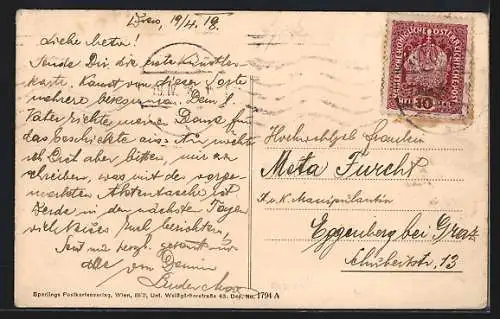 Wien, 19/4. 18.
Liebe Meta!
Sende Dir die erste Künstler-
karte. Kannst von dieser Sorte
mehrere Dem l.
Vater richte meine Dank für
das Geschickte aus. Nun möchte
ich Dich aber bitten, mir zu
schreiben, was mit der
Aktentasche ist.
Werde in den nächsten Tagen
viel Neues Euch berichten,
Seid mir herzl. gegrüßt
alle von Deinem
Bruder Max
K.K. ÖSTERREICHISCHE POST
10
Hochwohlgeb Fräulein
Meta Furcht
K.u.K. Manipulantin
Eggenberg bei Graz
Schubertstr. 13
Sperlings Postkartenverlag, Wien, III/2, Unt. Weißgärberstraße 43. Dep. No. 1794 A